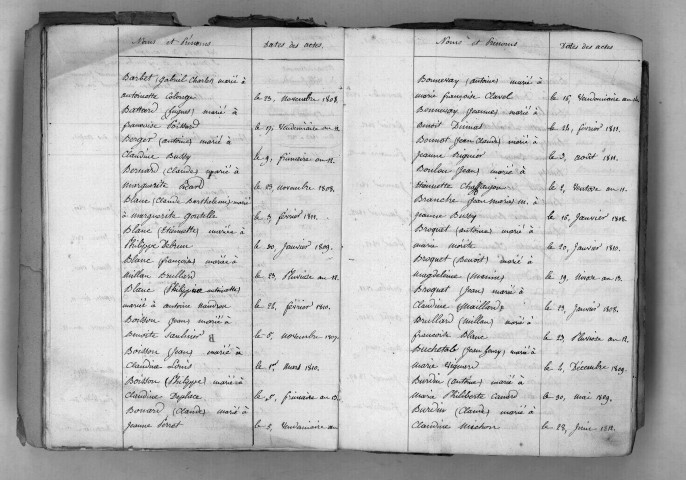 Noms et Prénoms dates des actes
Barbet (gabriel Charles) marié à
antoinette Colonge le 23, novembre 1808.
françoise le 17, Vendemiaire an 12.
Berger (antoine) marié à
Claudine Bussy le 9, frimaire an 12.
Bernard (Claude) marié à
marguerite Picard le 23, novembre 1808.
Blanc (Claude Barthelemi) marié
à marguerite le 3, février 1811.
Blanc (Etiennette) mariée à
Philippe Debrun le 30, Janvier 1809.
Blanc (françoise) mariée à
Millan Brullard le 23, Pluviose an 12.
Blanc (Philippine antoinette)
mariée à antoine le 26, février 1810.
Boisson (Jean) marié à
Benoite le 5, novembre 1807.
Boisson (Jean) marié à
Claudine Louis le 1er mars 1810.
Boisson (Philippe) marié à
Claudine Deplace le 5, frimaire an 13.
Bonnard (Claude) marié à
Jeanne le 5, Vendemiaire an
Noms et Prénoms Dates des actes
Bonnevay (antoine) marié à
marie françoise Clavel le 15, Vendemiaire an
Bonnevay (Jeanne) mariée à
Benoit Dumas le 26, février 1811.
Bonnot (Jean Claude) marié à
Jeanne le 3, août 1811.
Boulon (Jean) marié à
Etiennette le 2, Ventose an 11.
Branche (Jean marie) m. à
Jeanne Bussy le 15, Janvier 1808.
Broquet (antoine) marié à
marie le 20, Janvier 1810.
Broquet (Benoit) marié à
Magdeleine (Moisin) le 19, Nivose an 13.
Broquet (Jean) marié à
Claudine (Maillard) le 13, Janvier 1808.
Brullard (Millan) marié à
francoise Blanc le 23 Pluviose an 12.
marie le 6, Décembre 1809.
Burdin (antoine) marié à
Marie Philiberte Canard le 30, mai 1809.
Burdin (Claude) marié à
Claudine Michon le 28, Juin 1812.